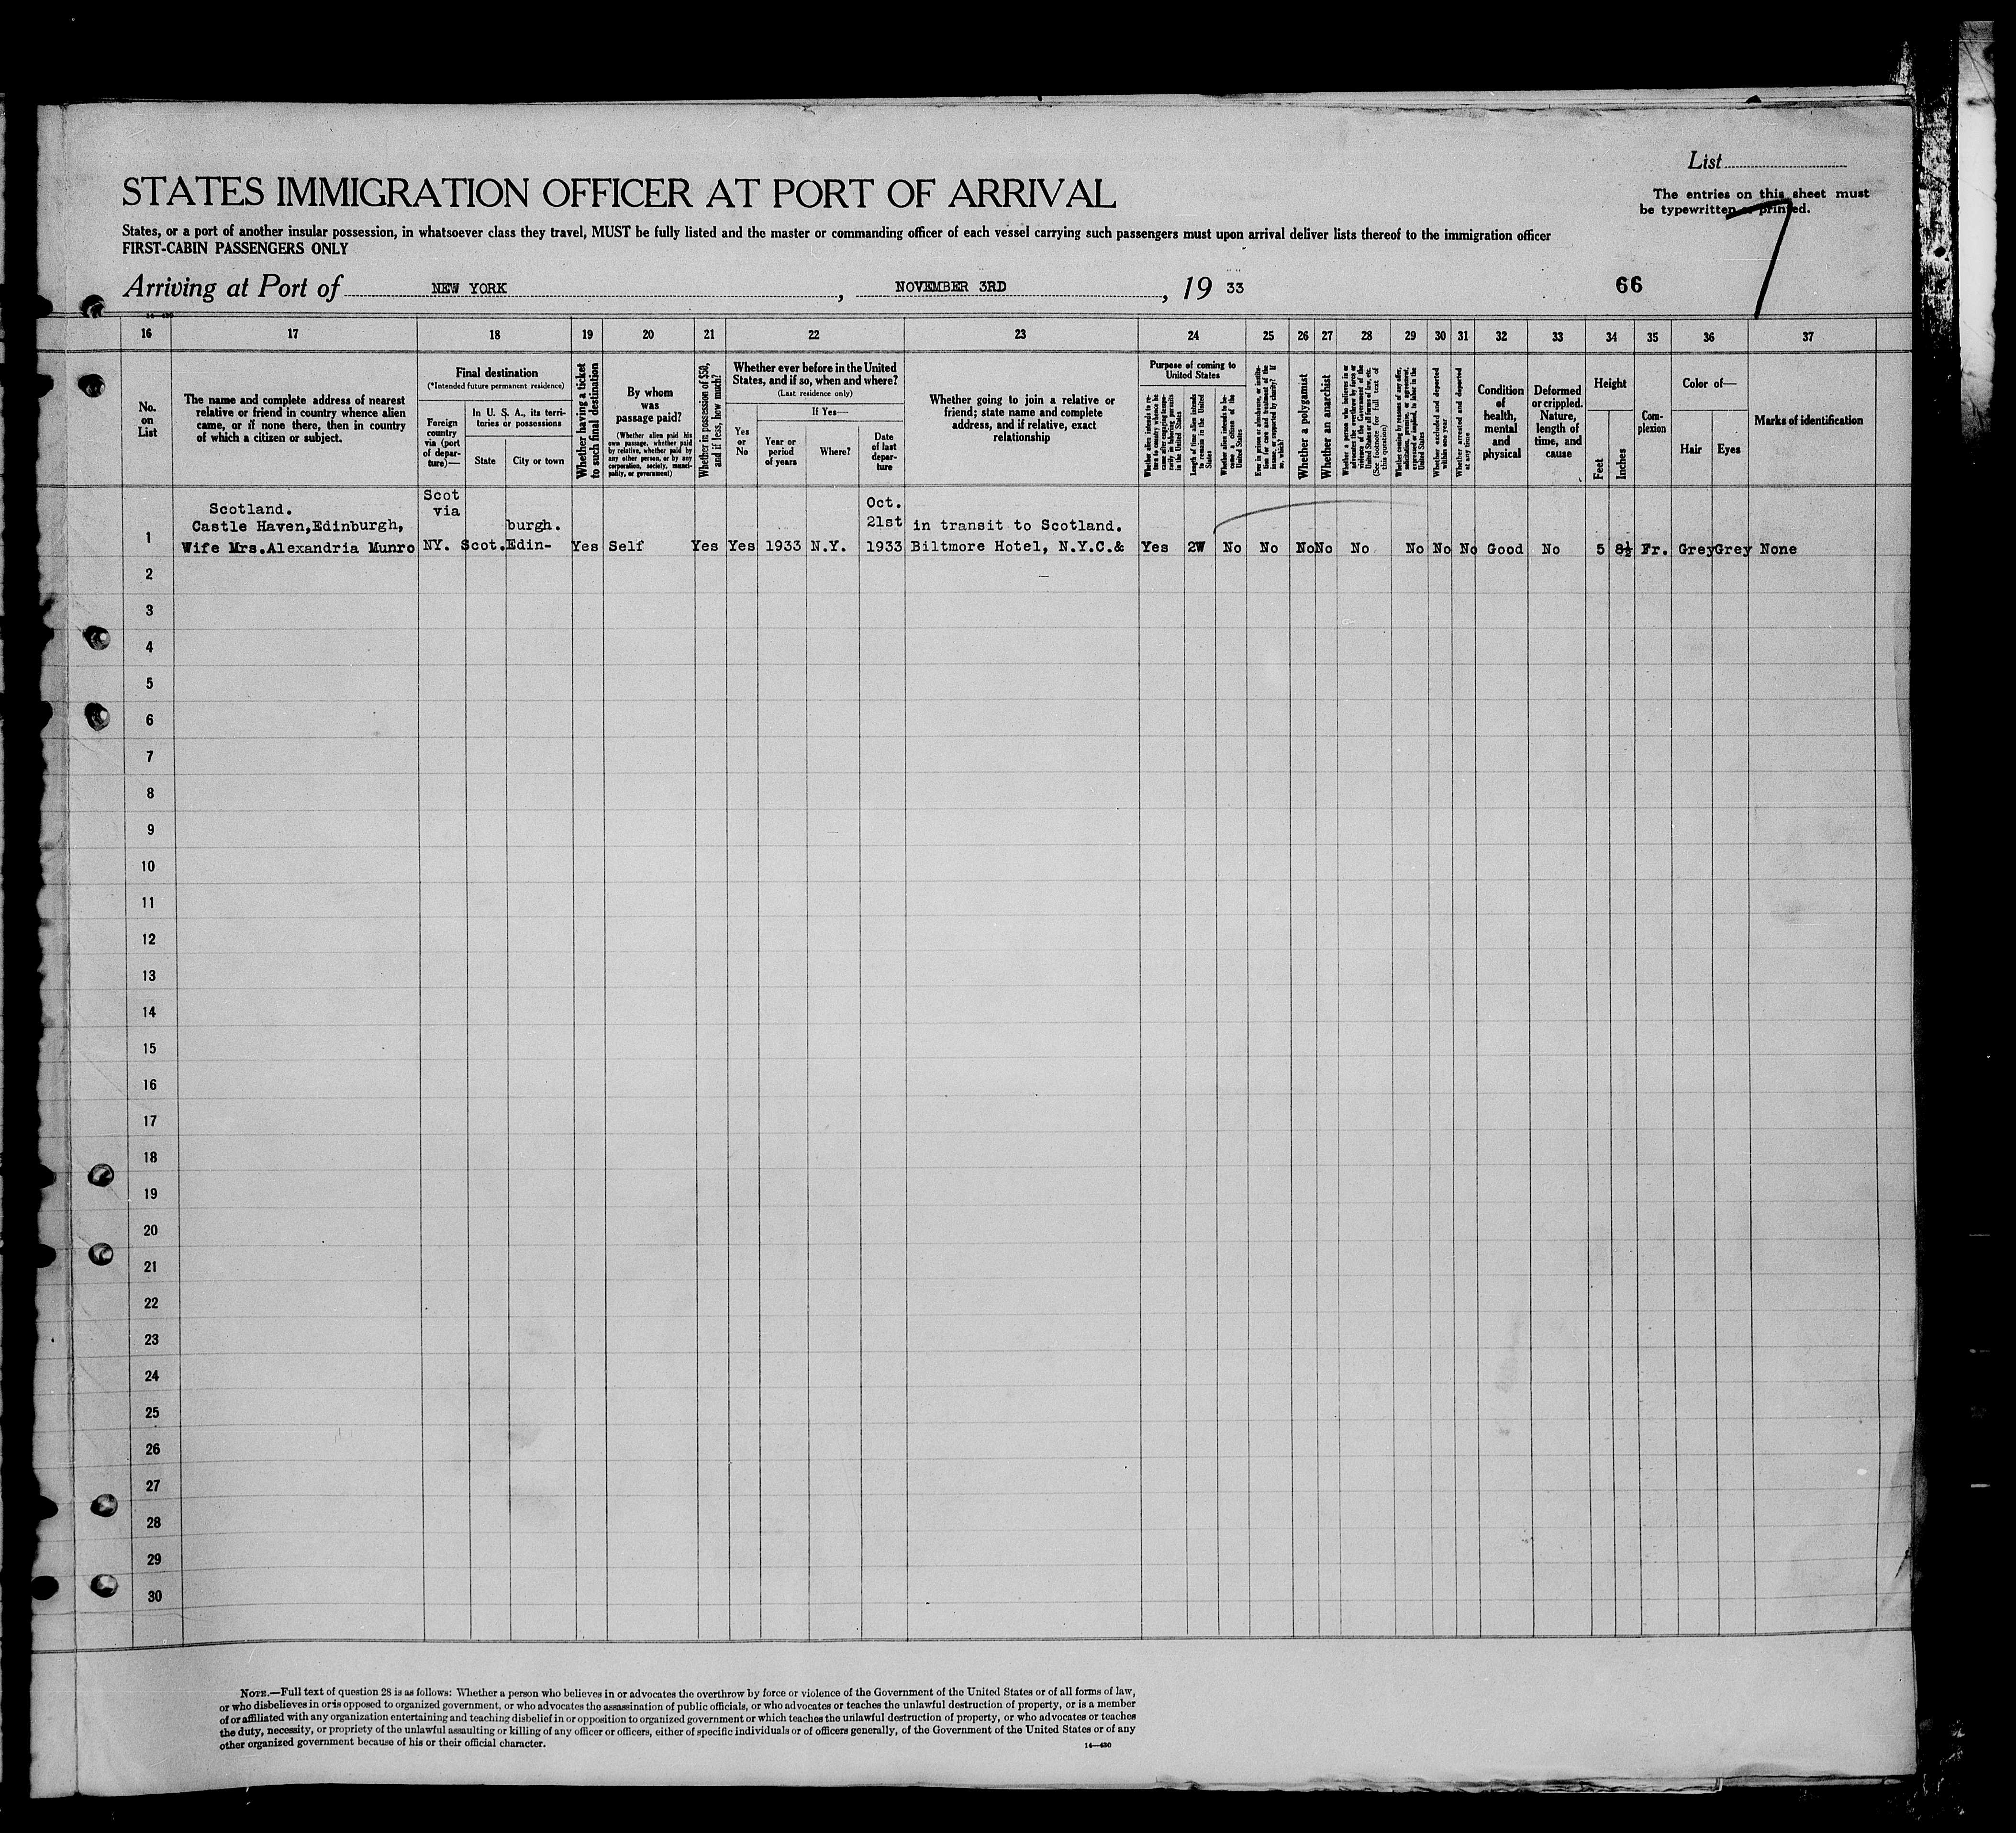 List
STATES IMMIGRATION OFFICER AT PORT OF ARRIVAL
The entries on this sheet must
be typewritten or printed.
7
States, or a port of another insular possession, in whatsoever class they travel, MUST be fully listed and the master or commanding officer of each vessel carrying such passengers must upon arrival deliver lists thereof to the immigration officer
FIRST-CABIN PASSENGERS ONLY
Arriving at Port of NEW YORK, NOVEMBER 3RD, 19 33
66
14—430
16 17 18 19 20 21 22 23 24 25 26 27 28 29 30 31 32 33 34 35 36 37
No.
on
List
The name and complete address of nearest
relative or friend in country whence alien
came, or if none there, then in country
of which a citizen or subject.
Final destination
(*Intended future permanent residence)
Foreign
country
via (port
of depar-
ture)—
In U. S. A., its terri-
tories or possessions
State
City or town
Whether having a ticket
to such final destination
By whom
was
passage paid?
(Whether alien paid his
own passage, whether paid
by relative, whether paid by
any other person, or by any
corporation, society, munici-
pality, or government)
Whether in possession of $50,
and if less, how much?
Whether ever before in the United
States, and if so, when and where?
(Last residence only)
Yes
or
No
If Yes—
Year or
period
of years
Where?
Date
of last
depar-
ture
Whether going to join a relative or
friend; state name and complete
address, and if relative, exact
relationship
Purpose of coming to
United States
Whether alien intends to re-
turn to country whence he
came after engaging tempo-
rarily in laboring pursuits
in the United States
Length of time alien intends
to remain in the United
States
Whether alien intends to be-
come a citizen of the
United States
Ever in prison or almshouse, or institu-
tion for care and treatment of the
insane, or supported by charity? If
so, which?
Whether a polygamist
Whether an anarchist
Whether a person who believes in or
advocates the overthrow by force or
violence of the Government of the
United States or all forms of law, etc.
(See footnote for full text of
this question)
Whether coming by reason of any offer,
solicitation, promise, or agreement,
expressed or implied, to labor in the
United States
Whether excluded and deported
within one year
Whether arrested and deported
at any time
Condition
of
health,
mental
and
physical
Deformed
or crippled.
Nature,
length of
time, and
cause
Height
Feet
Inches
Com-
plexion
Color of—
Hair
Eyes
Marks of identification
Scotland. Scot Oct.
Castle Haven,Edinburgh, via burgh. 21st in transit to Scotland.
1 Wife Mrs.Alexandria Munro NY. Scot. Edin- Yes Self Yes Yes 1933 N.Y. 1933 Biltmore Hotel, N.Y.C.& Yes 2W No No No No No No No No Good No 5 8½ Fr. Grey Grey None
2
3
4
5
6
7
8
9
10
11
12
13
14
15
16
17
18
19
20
21
22
23
24
25
26
27
28
29
30
NOTE.—Full text of question 28 is as follows: Whether a person who believes in or advocates the overthrow by force or violence of the Government of the United States or of all forms of law,
or who disbelieves in or is opposed to organized government, or who advocates the assassination of public officials, or who advocates or teaches the unlawful destruction of property, or is a member
of or affiliated with any organization entertaining and teaching disbelief in or opposition to organized government or which teaches the unlawful destruction of property, or who advocates or teaches
the duty, necessity, or propriety of the unlawful assaulting or killing of any officer or officers, either of specific individuals or of officers generally, of the Government of the United States or of any
other organized government because of his or their official character.
14—430